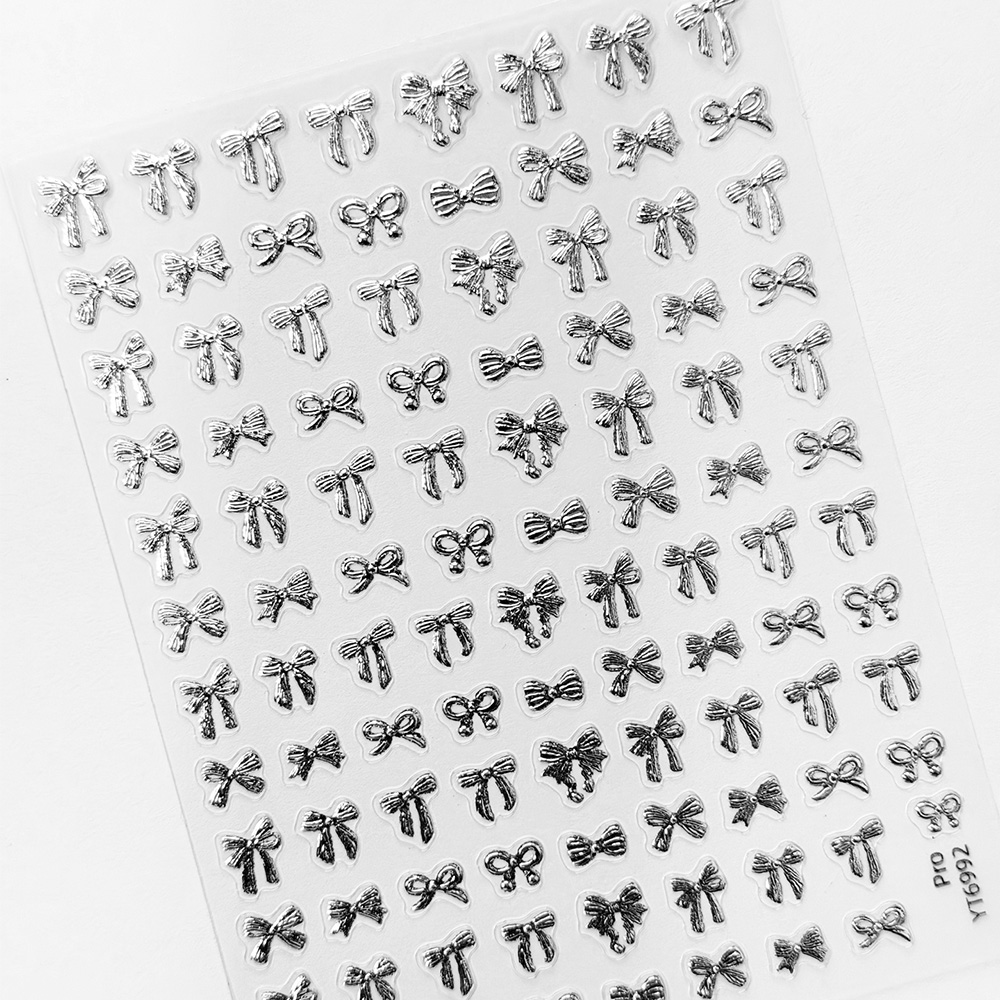 Pro
YT6992